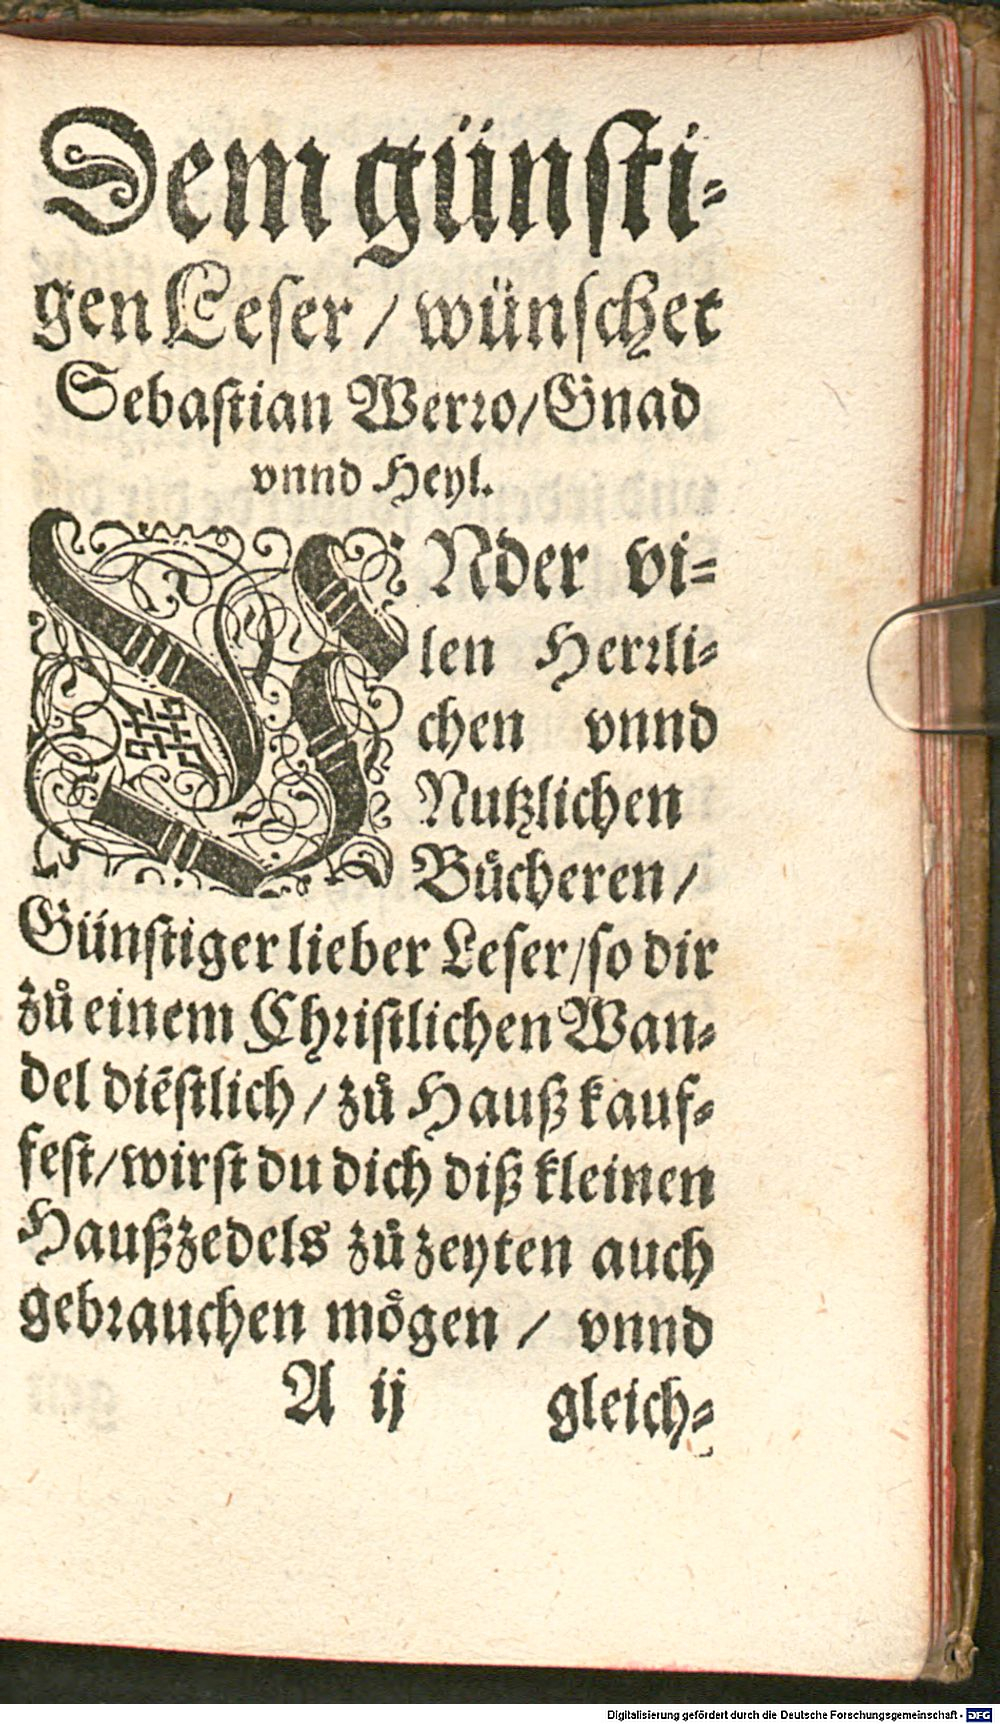 Dem günſti⸗
gen Leſer / wünſchet
Sebaſtian Werꝛo / Gnad
vnnd Heyl.
VNder vi⸗
len Herꝛli⸗
chen vnnd
Nutzlichen
Buͤcheren /
Günſtiger lieber Leſer / ſo dir
zů einem Chꝛiſtlichen Wan⸗
del diẽſtlich / zů Hauß kauf⸗
feſt / wirſt du dich diß kleinen
Haußzedels zů zeyten auch
gebꝛauchen moͤgen / vnnd
A ij gleich⸗
Digitalisierung gefördert durch die Deutsche Forschungsgemeinschaft - DFG